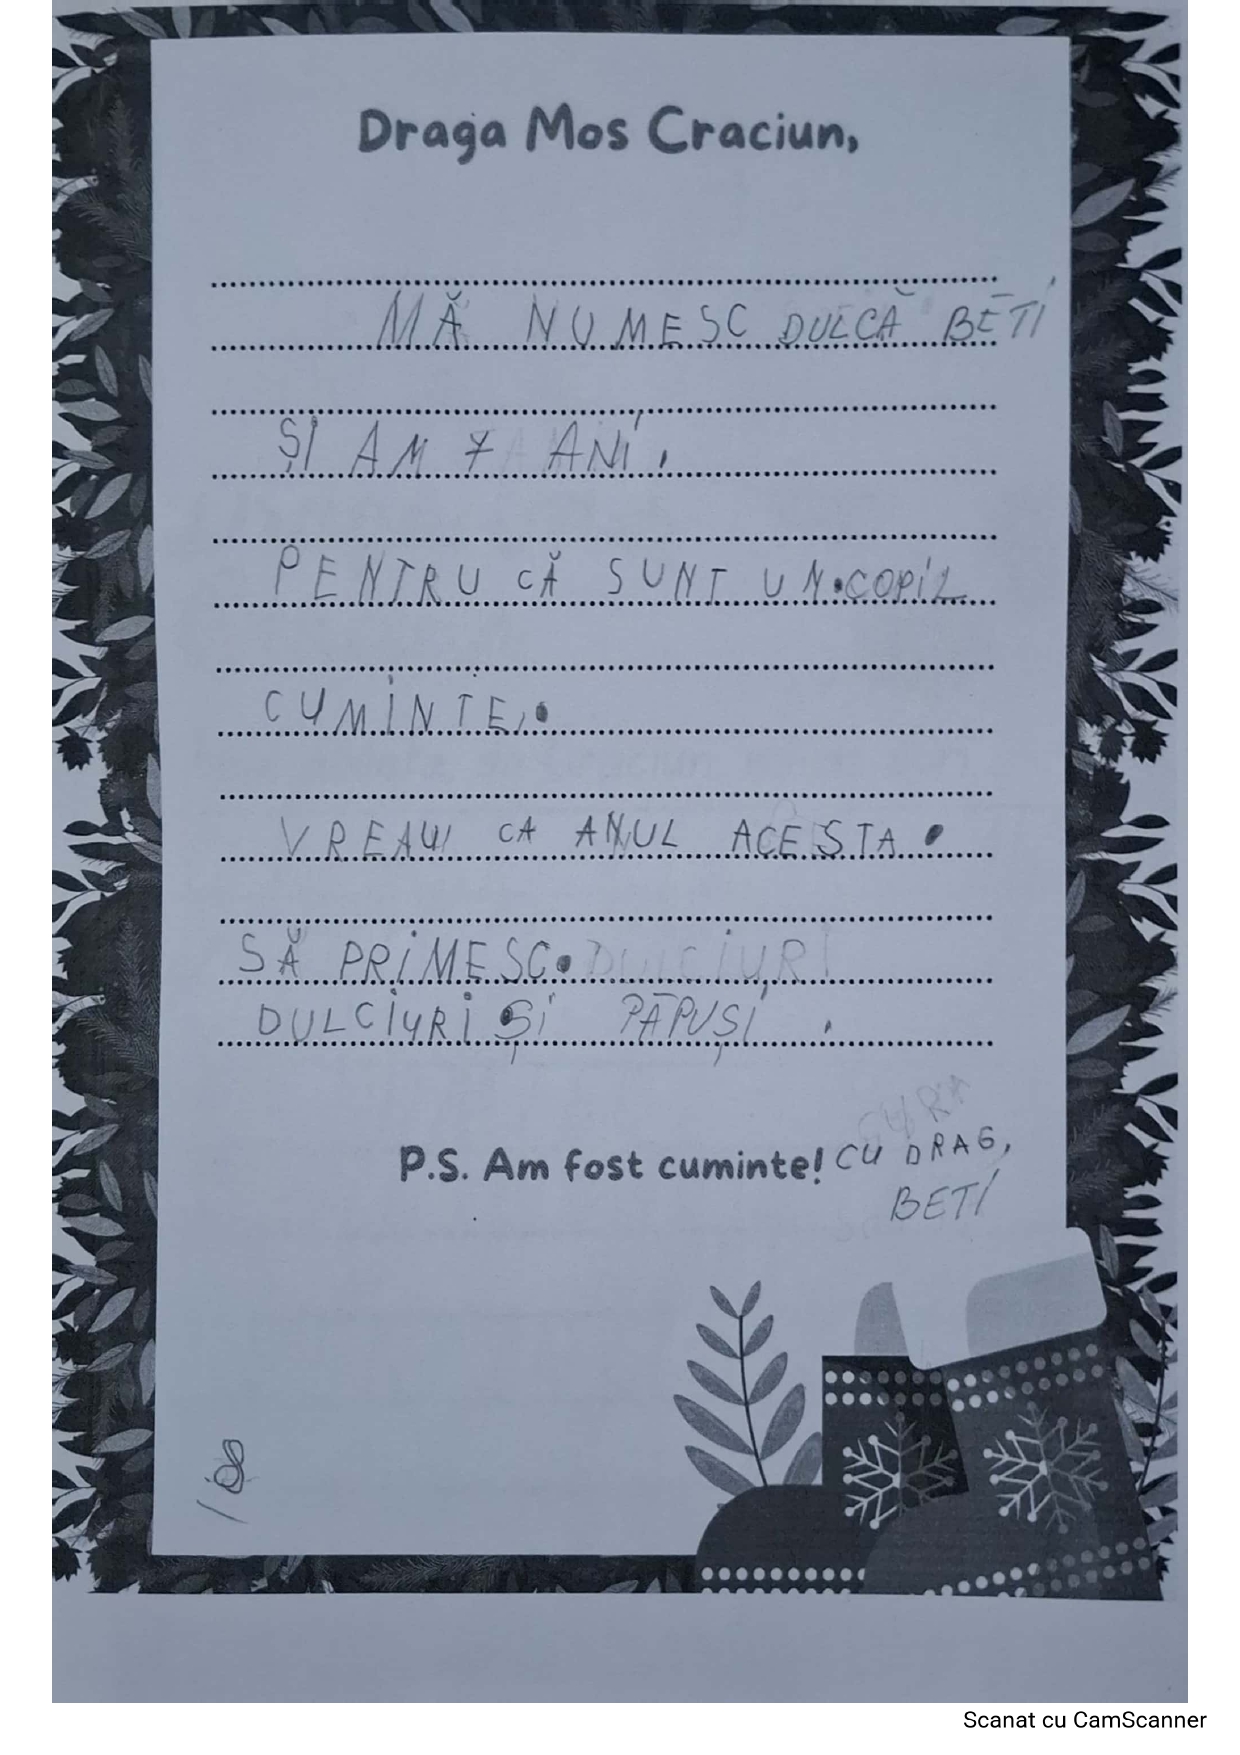 Draga Mos Craciun,
MĂ NUMESC DULCĂ BETI
ȘI AM 7 ANI.
PENTRU CĂ SUNT UN COPIL
CUMINTE,
VREAU CA ANUL ACESTA
SĂ PRIMESC DULCIURI
DULCIURI ȘI PĂPUȘI.
P.S. Am fost cuminte! CU DRAG,
BETI
Scanat cu CamScanner